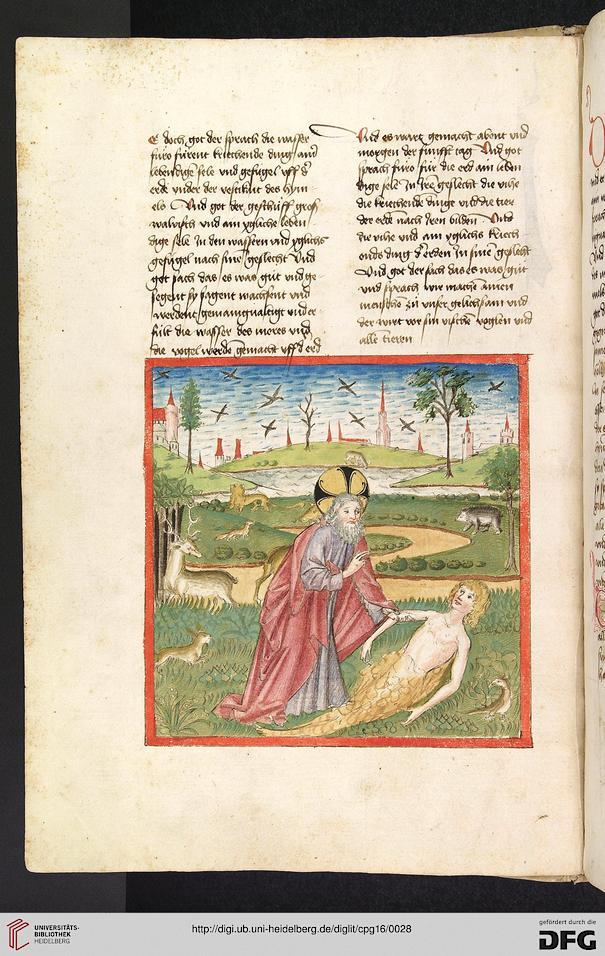 E doch got der sprach die wasser
füro fürent kriechende ding ains
lebendige sele und gefügel uff d
erde under der vestikait des him
els Und got der geschüff gros
walvisch und ain ygliche leben
dige sele in den wassern und ygliches
gefügel nach sinem geslecht Und
got sach das es was güt und ge
segent sy sagent wachsent und
werdent gemanigualtiget und er
füllt die wasser des meres und
die vogel werde gemacht uff d erd
Und es wart gemacht abent und
morgen der fünfft tag Und got
sprach füro für die erd ain leben
dige sele in irem geslecht die vihe
die kriechende dinge und die tier
der erde nach iren bilden Und
die vihe und ain yglichs kriech
ends ding d erden in sinem geslecht
Und got der sach das es was güt
und sprach wir machen ainen
menschen zü unser gelichsam und
der wirt vor sin vischen voglen und
allen tieren
UNIVERSITÄTS-
BIBLIOTHEK
HEIDELBERG
http://digi.ub.uni-heidelberg.de/diglit/cpg16/0028
gefördert durch die
DFG